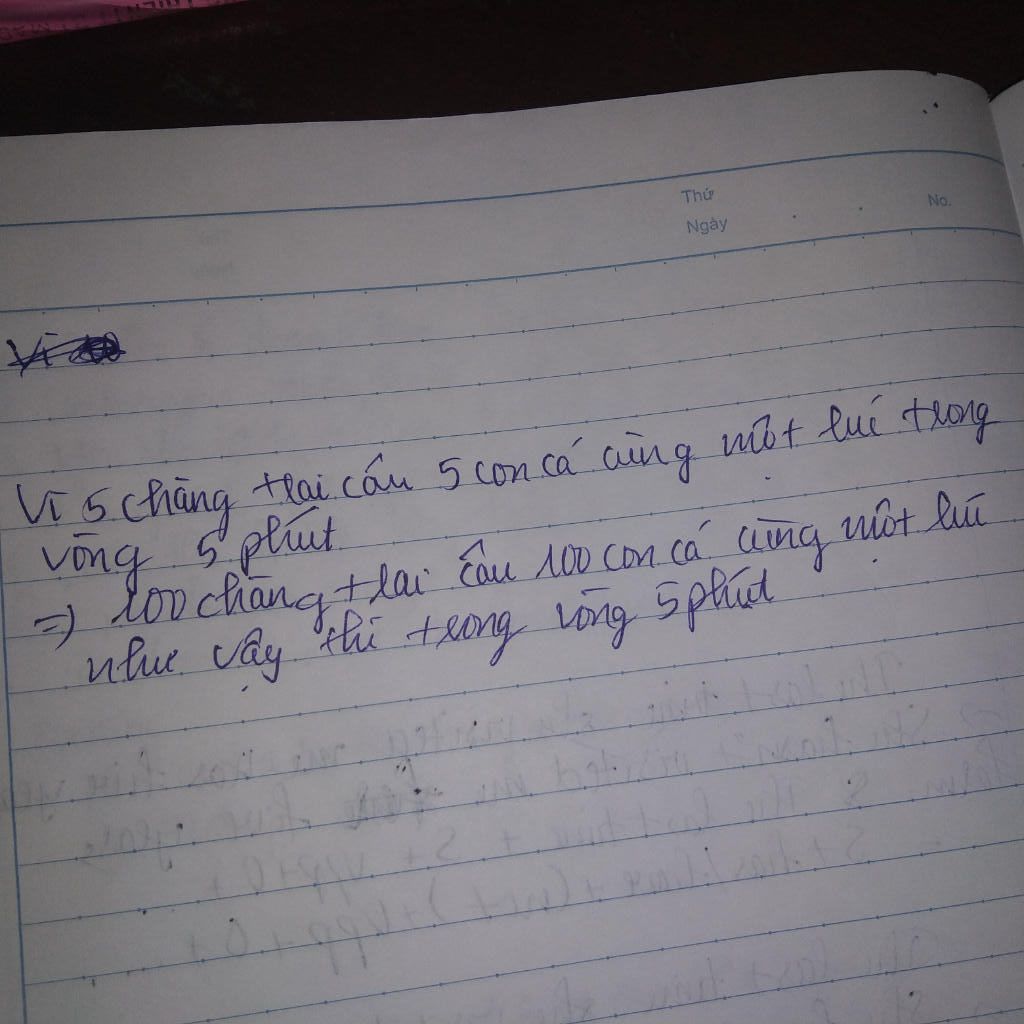 Thứ
Ngày
No.
Vì
Vì 5 chàng trai câu 5 con cá cùng một lúc trong
vòng 5 phút
=> 100 chàng trai câu 100 con cá cùng một lúc
như vậy thì trong vòng 5 phút